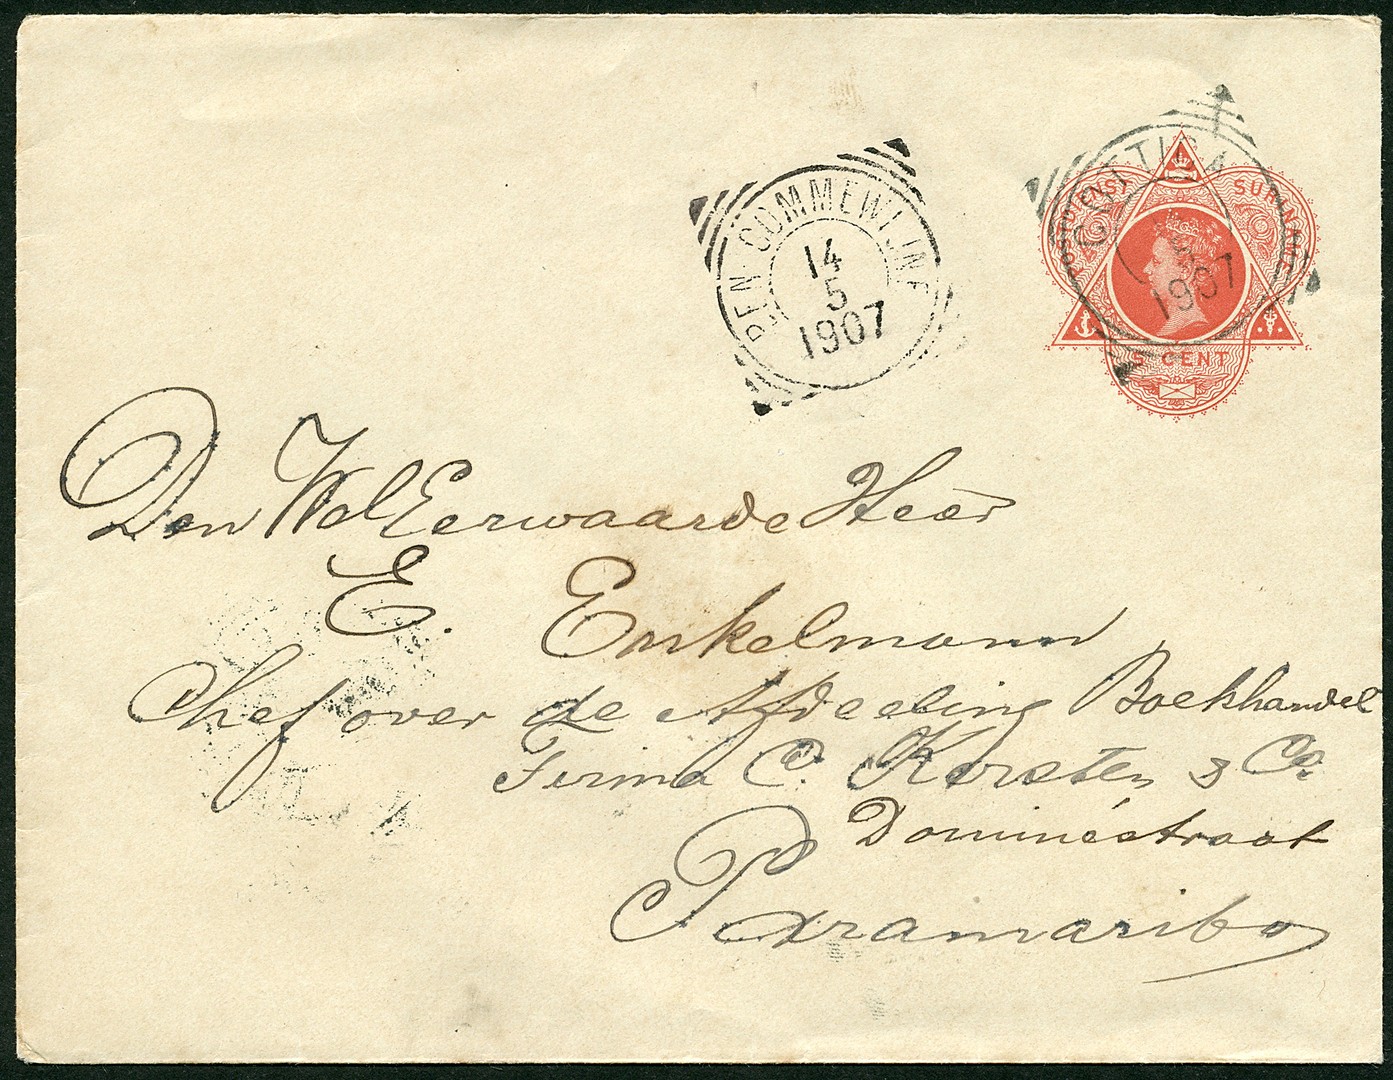 BEN-COMMEWIJNE
14
5
1907
COTTICA
1907
POSTDIENST
SURINAME
5 CENT
Den WelEerwaarde Heer
E. Enkelmann
Chef over de Afdeeling Boekhandel
Firma C. Kersten & Co.
Dominéstraat
Paramaribo